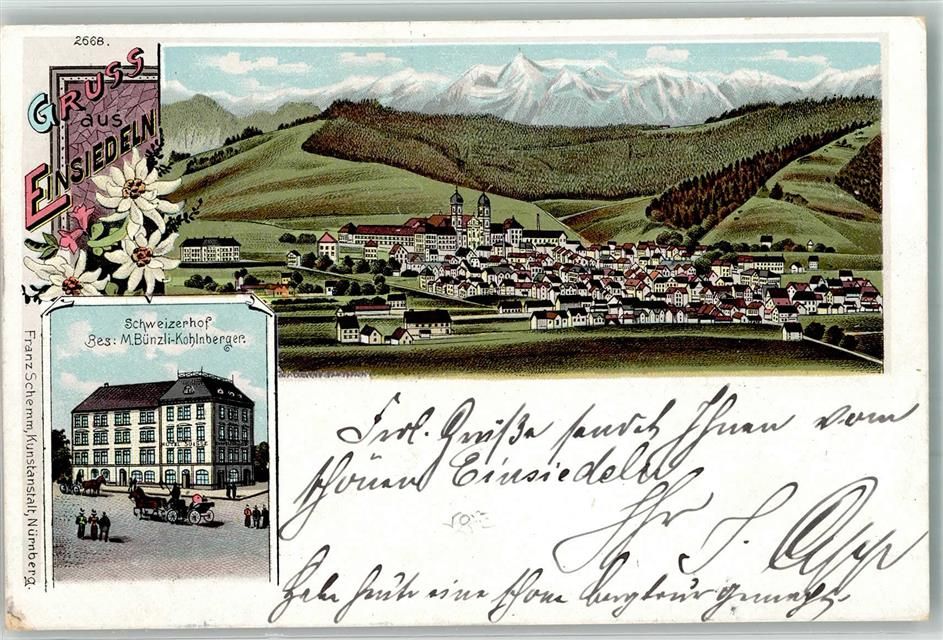 2668.
GRUSS
aus
EINSIEDELN
Schweizerhof
Bes: M.Bünzli-Kohlnberger.
HOTEL SUISSE
Franz Schemm, Kunstanstalt, Nürnberg.
Frdl. Grüße sendet Ihnen vom
schönen Einsiedeln
Ihr J.
Habe heute eine schöne bergtour gemacht.